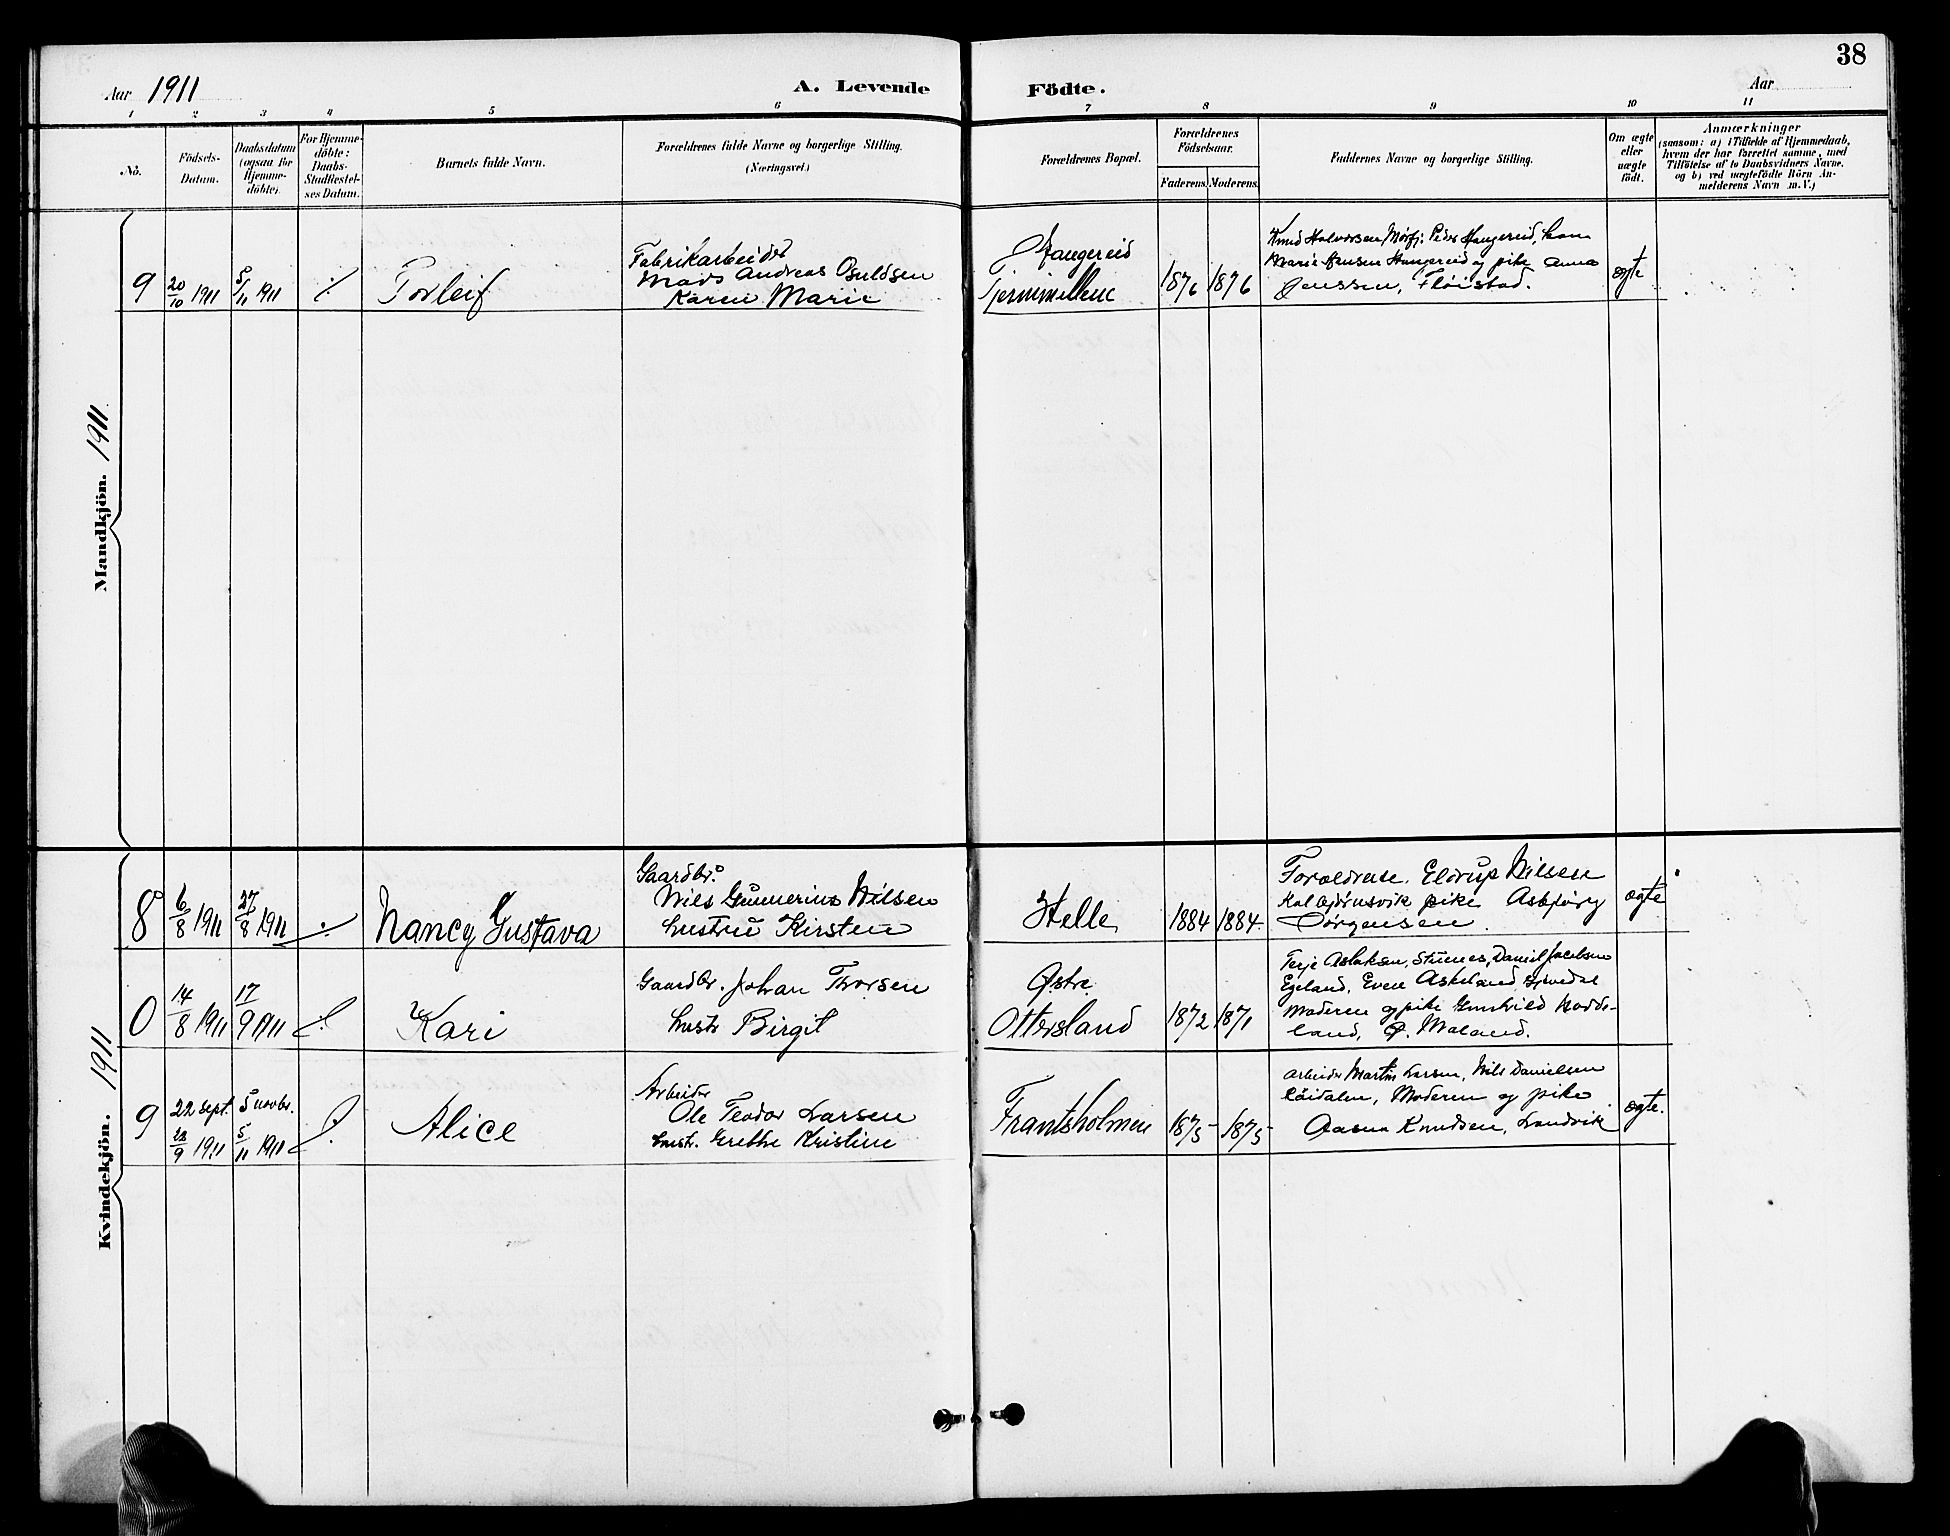 38
Aar 1911
A. Levende Födte.
Aar
1 2 3 4 5 6 7 8 9 10 11
No.
Födsels-
Datum.
Daabsdatum
(ogsaa for
Hjemme-
döbte).
For Hjemme-
döbte:
Daabs-
Stadfæstel-
ses Datum.
Barnets fulde Navn.
Forældrenes fulde Navne og borgerlige Stilling.
(Næringsvei.)
Forældrenes Bopæl.
Forældrenes
Födselsaar.
Faderens. Moderens.
Faddernes Navne og borgerlige Stilling.
Om ægte
eller
uægte
födt.
Anmærkninger
(saasom: a) i Tilfælde af Hjemmedaab,
hvem der har forrettet samme, med
Tilföielse af to Daabsvidners Navne,
og b) ved uægtefödte Börn An-
melderens Navn m. V.)
Mandkjön. 1911
9 20/10 1911 5/11 1911 ./. Torleif
Fabrikarbeider
Mads Andreas Osuldsen
Karen Marie
Hangereid
1876 1876
Knud Halvorsen Peder Hangereid, kone
Marie Hansen Hangereid og pike Anna
Jenssen, Fløistad.
ægte
Kvindekjön. 1911
8 6/8 1911 27/8 1911 ./. Nancy Gustava
Gaardbr.
Nils Gunnerius Nilsen
hustru Kirsten
Helle
1884 1884
Forældrene. Eldrup Nilsen
Kalvbjørnsvik pike Asbjørg
Jørgensen.
ægte
0 14/8 1911 17/9 1911 ./. Kari
Gaardbr. Johan Thorsen
hustr Birgit
Østre
Ottersland
1872 1871
Terje Aslaksen, Stienes, Daniel Jacobsen
Egeland, Even Askeland, Gjøvdal
Moderen og pike Gunhild Hodde-
land, Ø. Maland.
9 22 sept. 5 novbr. ./. Alice
22/9 1911 5/11 1911
Arbeider
Ole Teodor Larsen
hustr. Grethe Kristine
Frantsholmen
1875 1875
arbeider Martin Larsen, Nils Danielsen
Røidalen, Moderen og pike
Aasna Knudsen, Landvik
ægte.